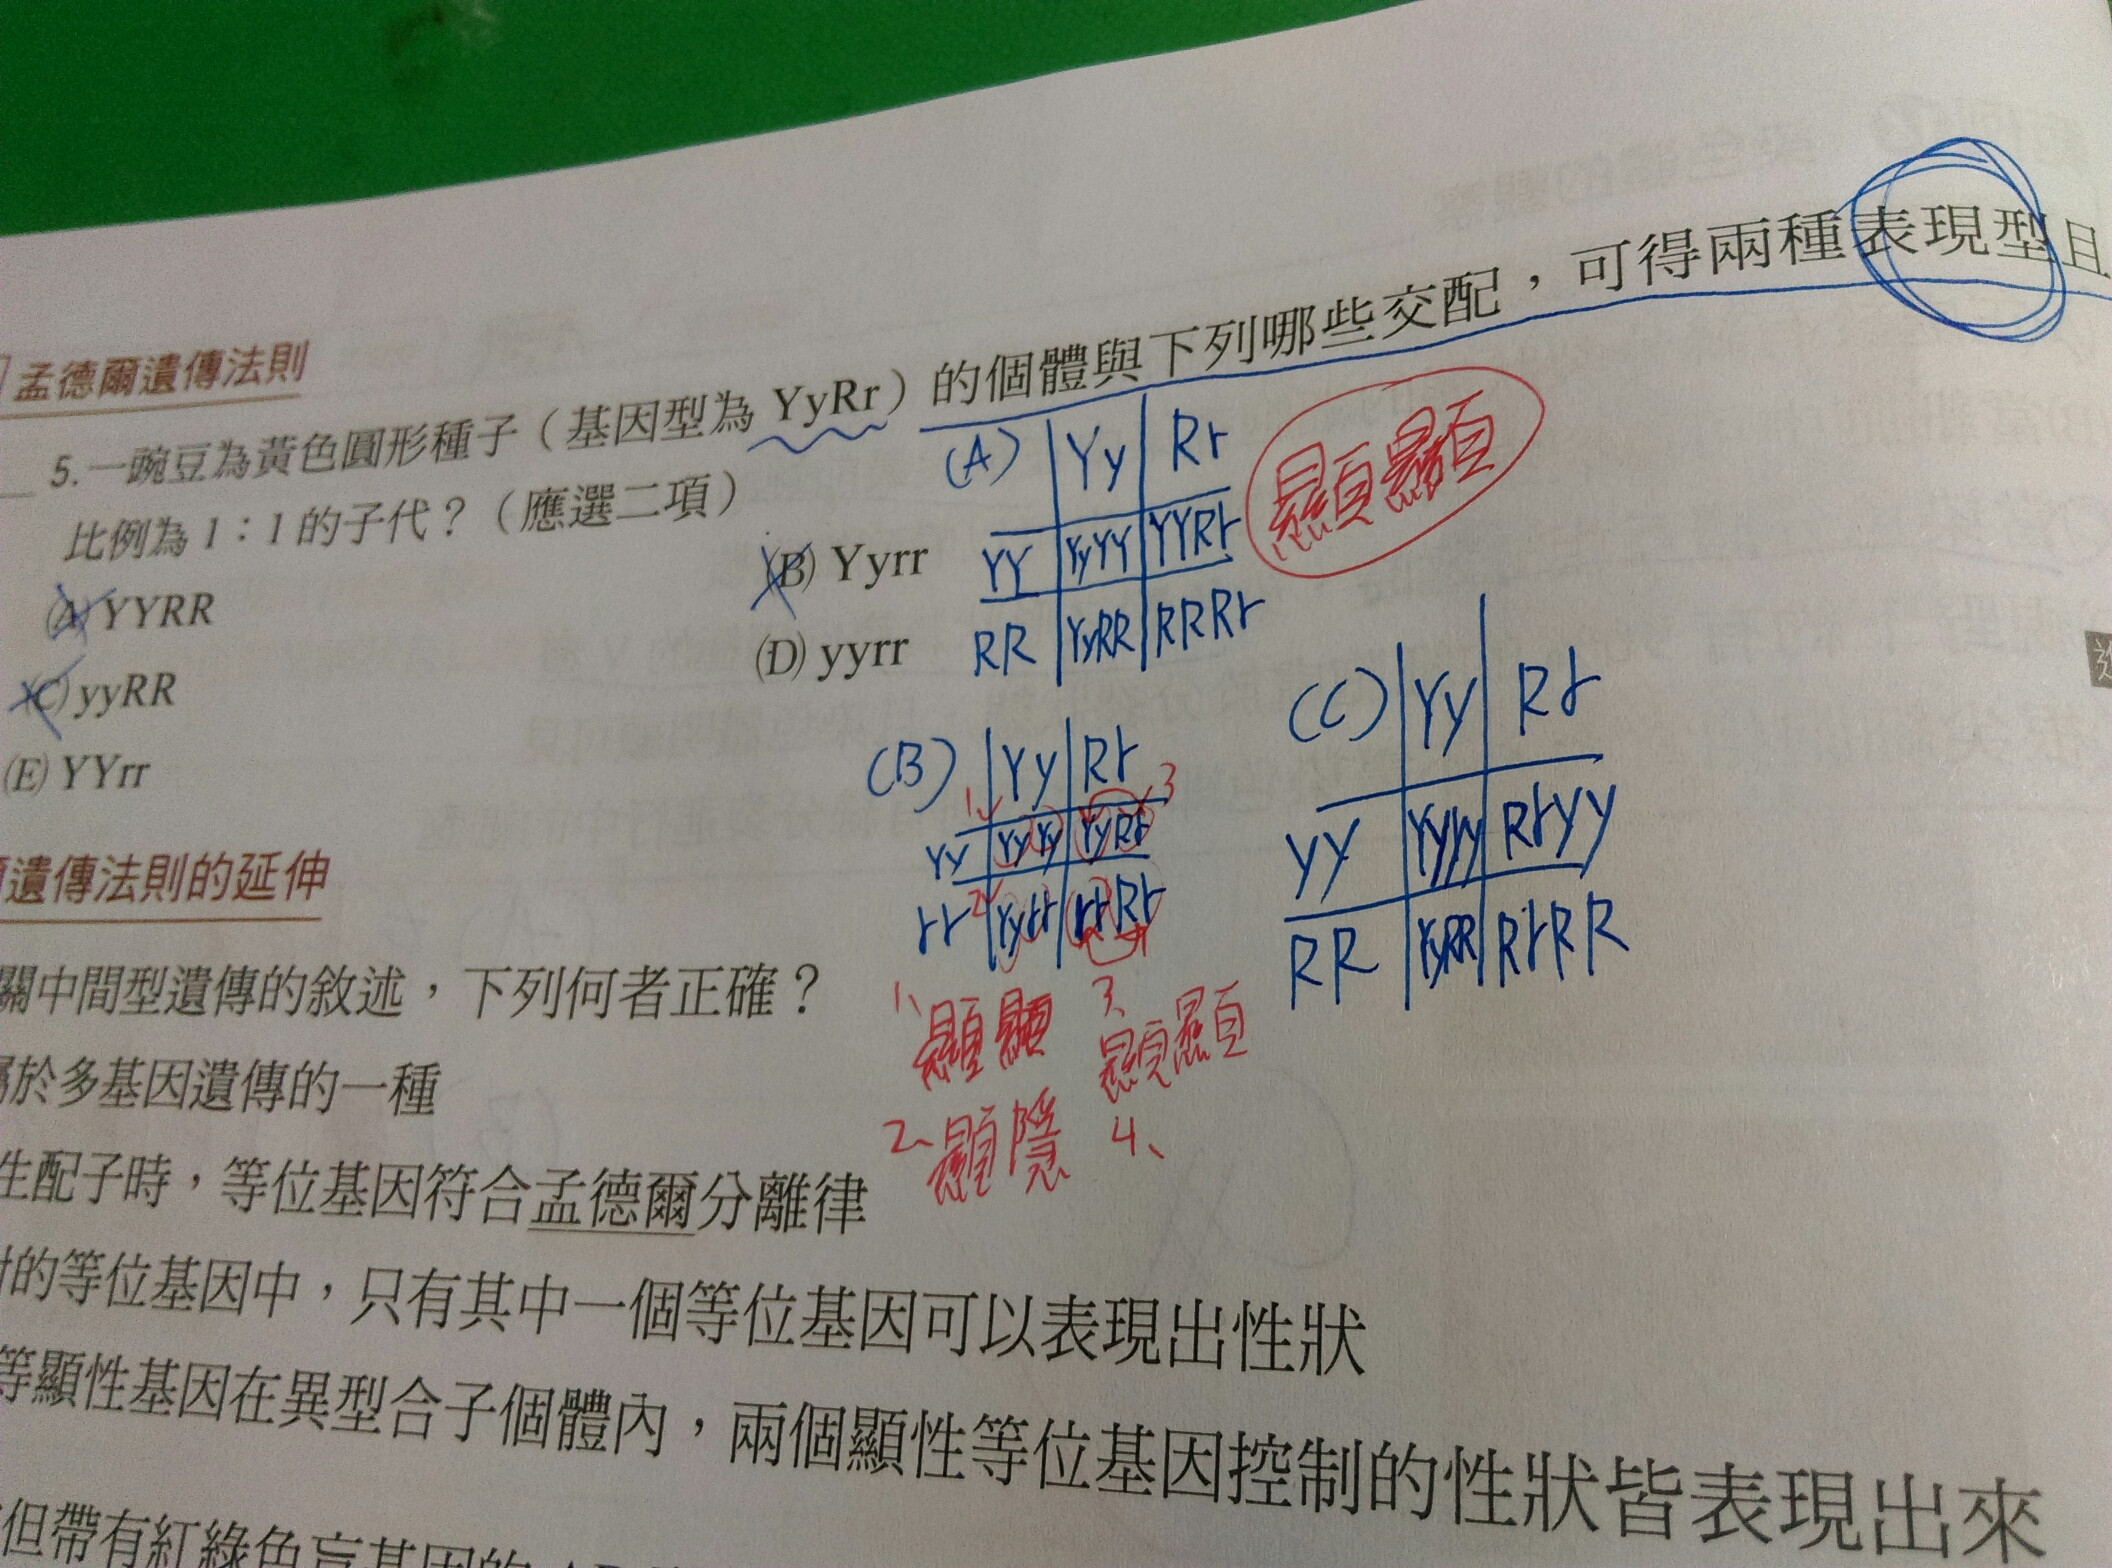 孟德爾遺傳法則
5.一豌豆為黃色圓形種子（基因型為 YyRr）的個體與下列哪些交配，可得兩種表現型且
比例為 1：1 的子代？（應選二項）
(A) YYRR
(B) Yyrr
(C) yyRR
(D) yyrr
(E) YYrr
(A) Yy Rr
YY YyYY YYRr
RR YyRR RRRr
顯顯
(B) Yy Rr
Yy YyYy YyRr
rr Yyrr rrRr
1、顯顯
2、顯隱
3、顯顯
4、
(C) Yy Rr
yy Yyyy Rryy
RR YyRR RrRR
遺傳法則的延伸
關中間型遺傳的敘述，下列何者正確？
屬於多基因遺傳的一種
生配子時，等位基因符合孟德爾分離律
的等位基因中，只有其中一個等位基因可以表現出性狀
等顯性基因在異型合子個體內，兩個顯性等位基因控制的性狀皆表現出來
但帶有紅綠色盲基因的